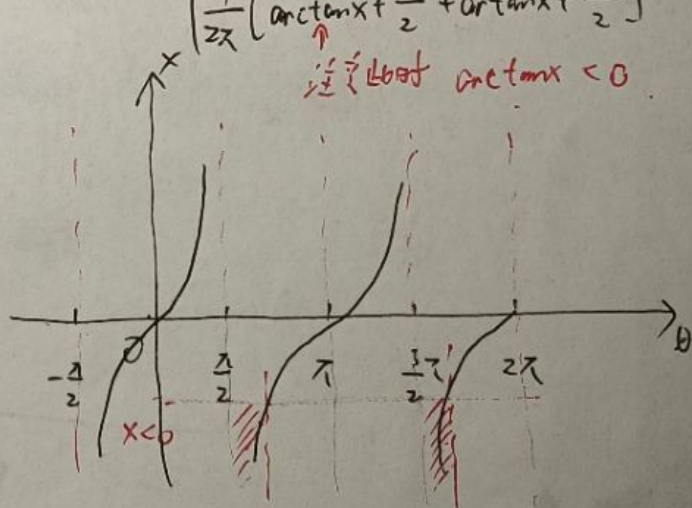 1/2π [ arctanx + /2 + arctanx + /2 ]
注意此时 arctanx < 0 .
x
O
-π/2
π/2
π
3/2 π
2π
θ
x<0